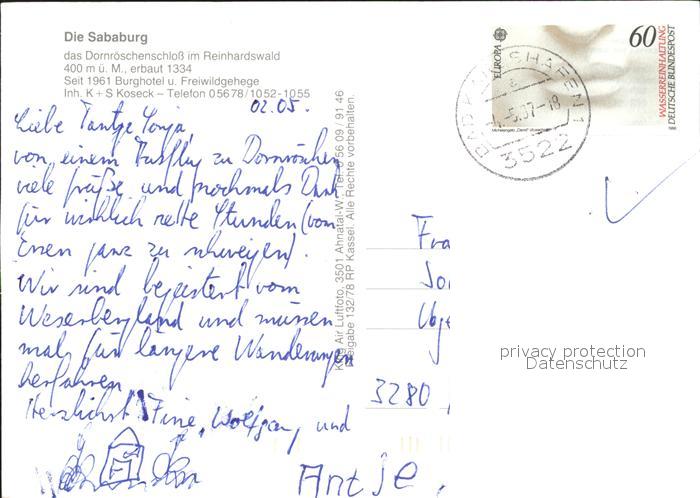 Die Sababurg
das Dornröschenschloß im Reinhardswald
400 m ü. M., erbaut 1334
Seit 1961 Burghotel u. Freiwildgehege
Inh. K + S Koseck – Telefon 05678/1052-1055
02.05.
Liebe Tantge Sonja,
von einem Ausflug zu Dornröschen
viele Grüße und nochmals Dank
für wirklich nette Stunden (vom
Essen ganz zu schweigen).
Wir sind begeistert vom
Weserbergland und müssen
mal für längere Wanderungen
herfahren
Herzlichst Fine, Wolfgang und
Antje
Air Luftfoto, 3501 Ahnatal-W. Tel. 0 56 09 / 91 46
Freigabe 132/78 RP Kassel. Alle Rechte vorbehalten.
EUROPA
60
WASSERREINHALTUNG
DEUTSCHE BUNDESPOST
BAD KARLSHAFEN 1
.-5.87-18
3522
Fra
3280
privacy protection
Datenschutz